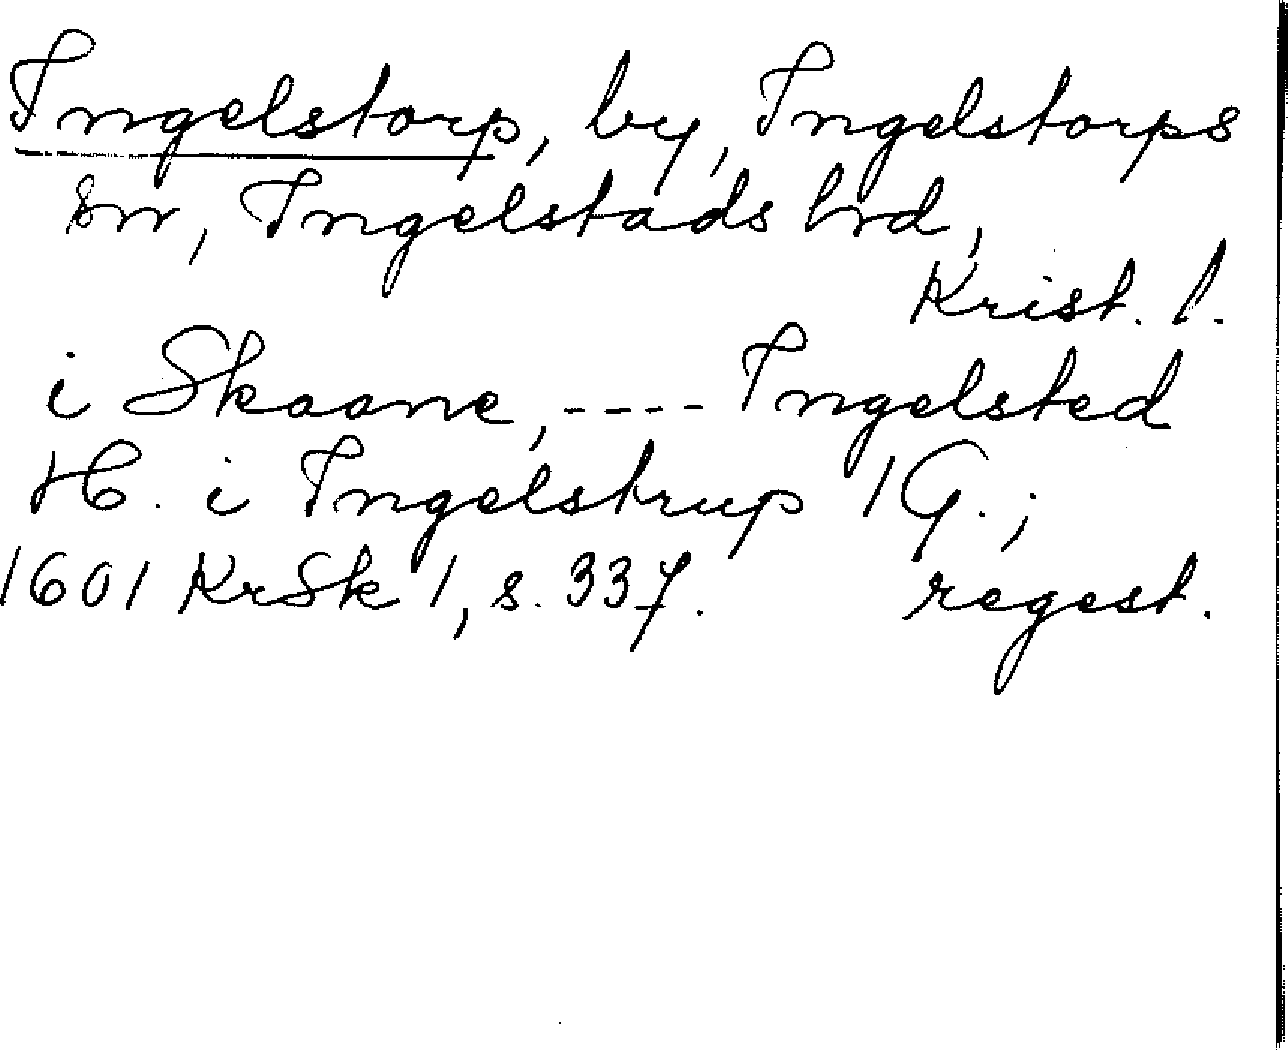 Ingelstorp, by, Ingelstorps
sn, Ingelstads hrd,
Krist. l.
i Skaane, ---- Ingelsted
H. i Ingelstrup 1 G.;
1601 KrSk 1, s. 337. regest.